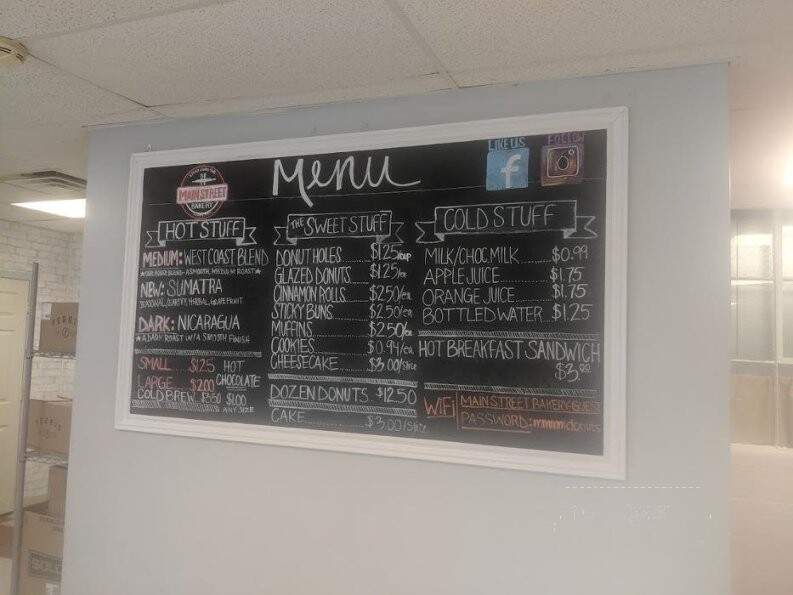 Menu
LIKE US
f
FOLLOW
MAIN STREET
BAKERY
HOT STUFF
MEDIUM: WEST COAST BLEND
NEW: SUMATRA
DARK: NICARAGUA
*A DARK ROAST W/A SMOOTH FINISH
SMALL $1.25
LARGE $2.00
COLD BREW
HOT
CHOCOLATE
$1.00
ANY SIZE
THE SWEET STUFF
DONUT HOLES $1.25/cup
GLAZED DONUTS $1.25/ea
CINNAMON ROLLS $2.50/ea
STICKY BUNS $2.50/ea
MUFFINS $2.50/ea
COOKIES $0.94/ea
CHEESECAKE $3.00/slice
DOZEN DONUTS $12.50
CAKE $3.00/slice
COLD STUFF
MILK/CHOC.MILK $0.99
APPLE JUICE $1.75
ORANGE JUICE $1.75
BOTTLED WATER $1.25
HOT BREAKFAST SANDWICH
$3.00
WiFi
MAIN STREET BAKERY-GUEST
PASSWORD: mmmdonuts